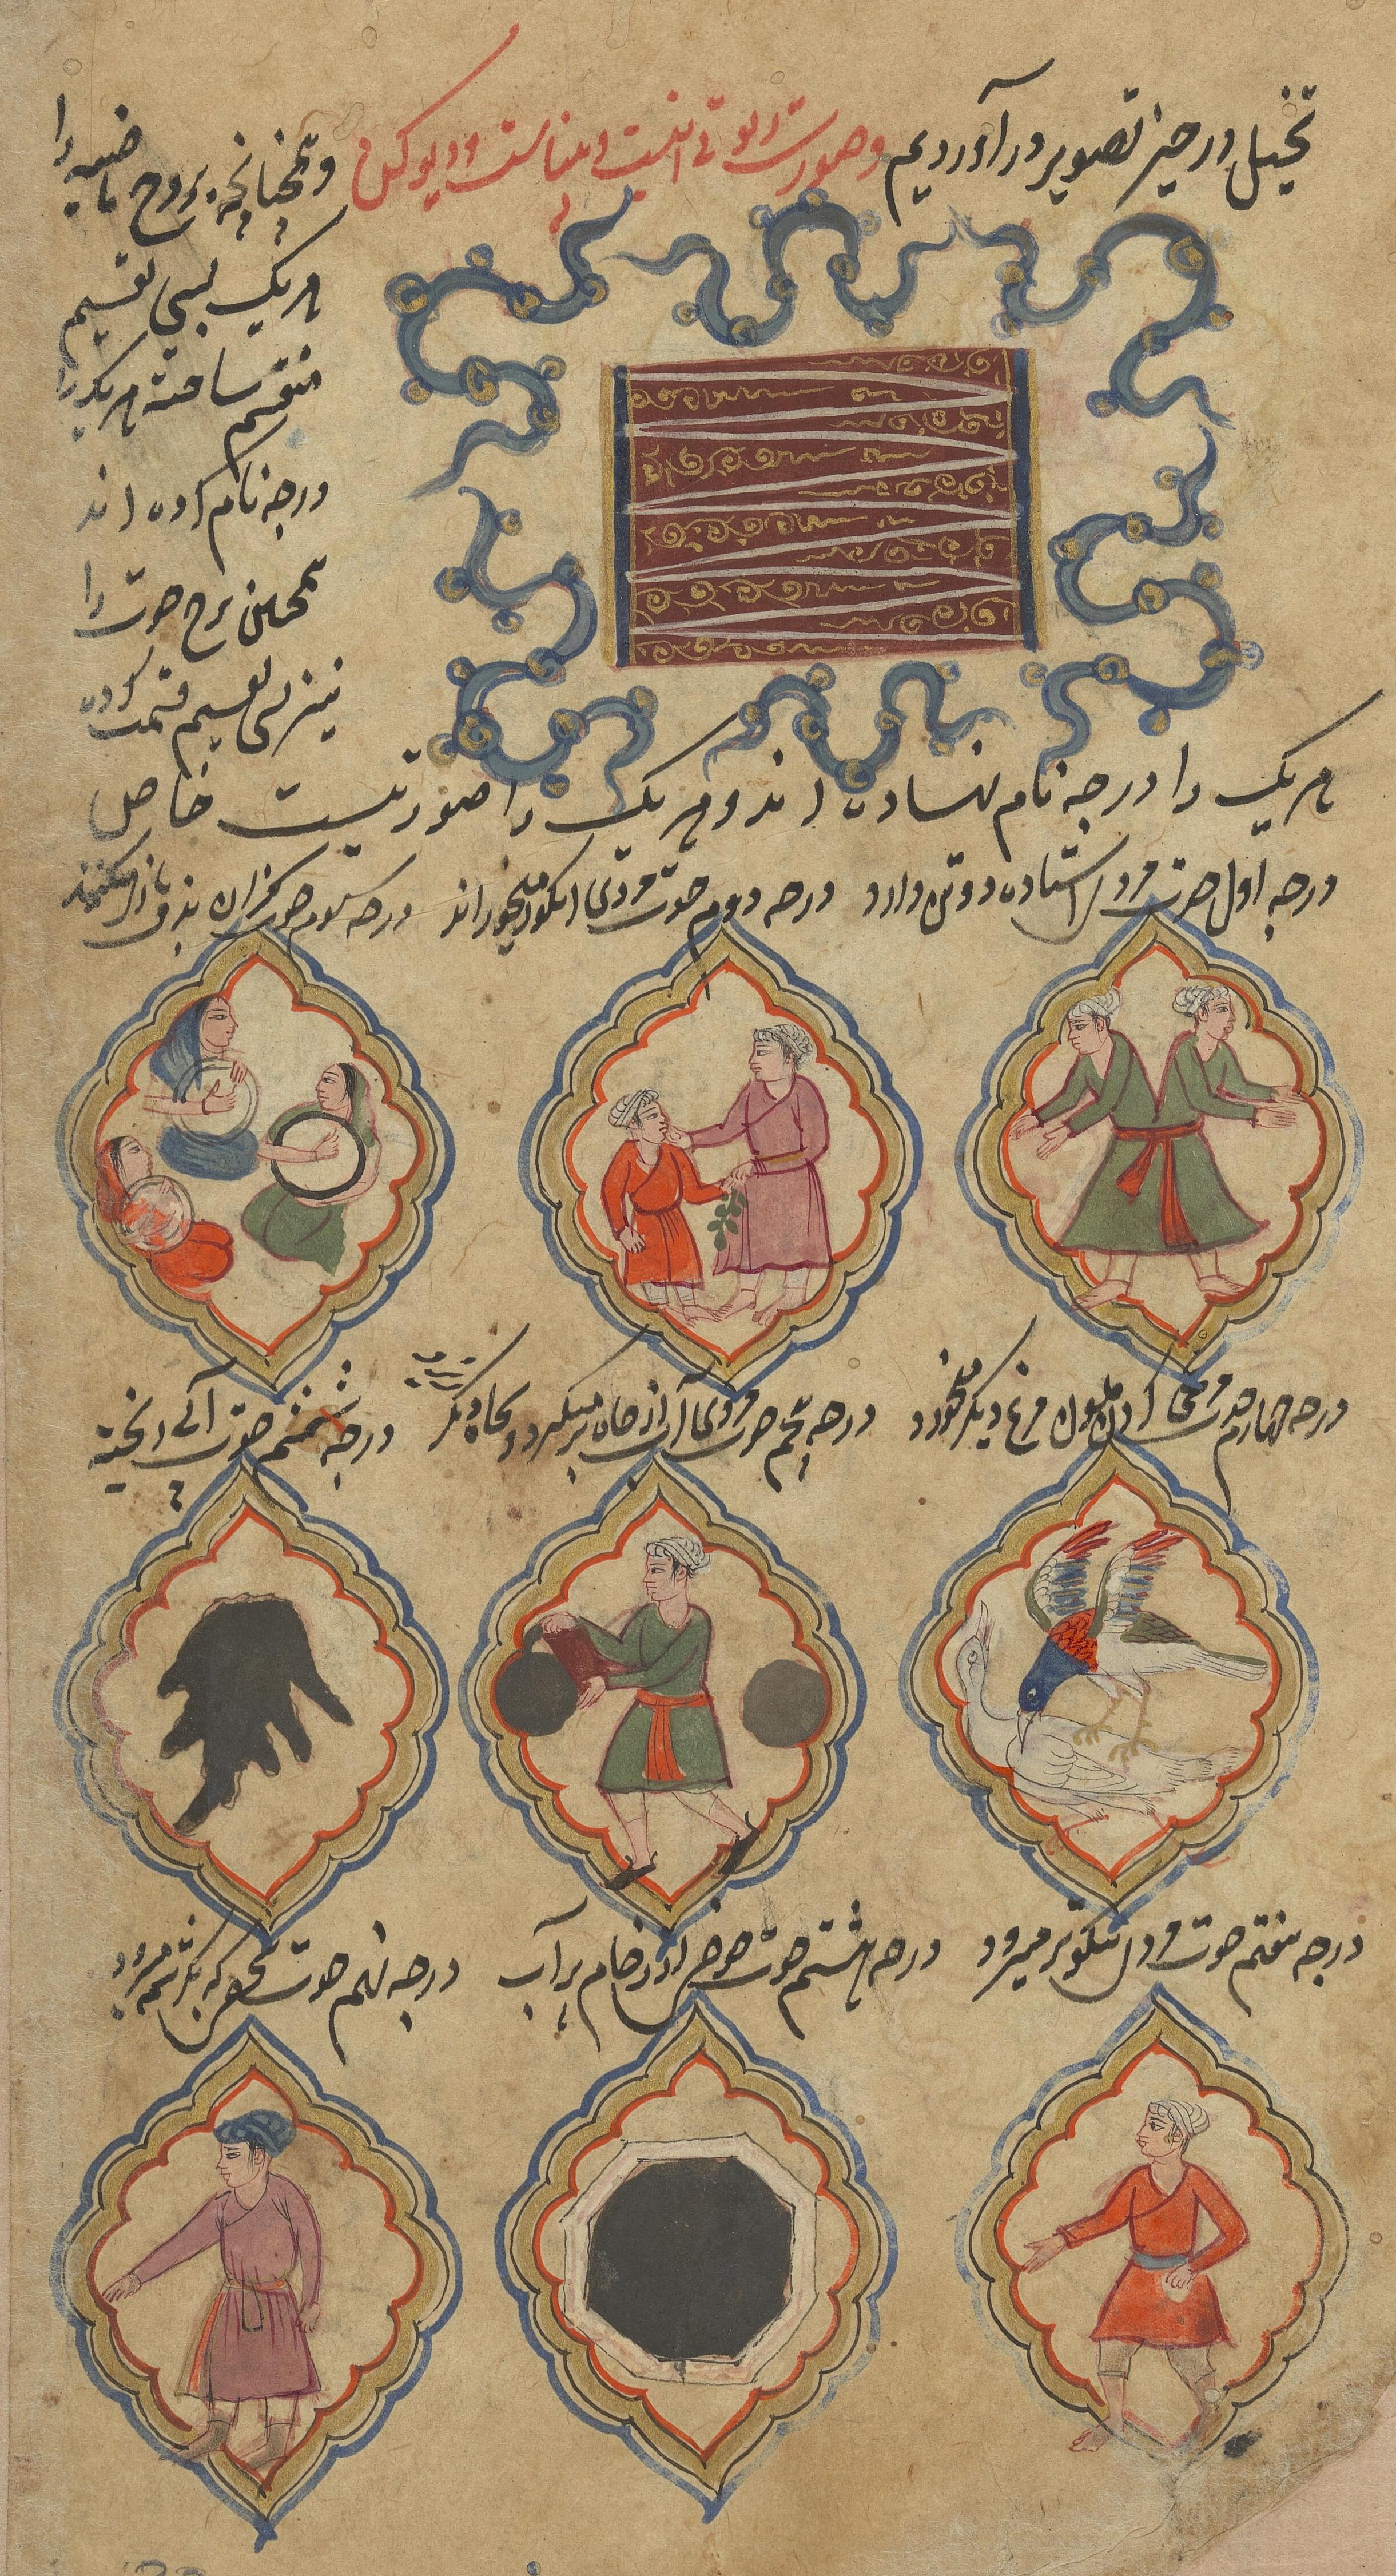 تخیل در حیز تصویر در آوردیم وصورت ریوتی اینست و همچنانچه بروج ماضیه را
هریک بسی تقسیم
منقسم ساخته هریک را
درجه نام کرده اند
همچنین برج حوت را
نیز بسی تقسیم قسمت کرده
هریک را درجه نام نهاده اند و هریک را صورتیست خاص
درجه اول حوت مردی استاده دو تن دارد
درجه دوم حوت مردی انگور میخوراند
درجه سوم حوت کنیزان بدف بازی میکنند
درجه چهارم حوت مرغی مرغ دیگر میخورد
درجه پنجم حوت مردی آب از چاه برمیگیرد و بچاه دیگر میریزد
درجه ششم حوت آبی ریخته
درجه هفتم حوت مردی میرود
درجه هشتم حوت حوضی از رخام پر آب
درجه نهم حوت شخصی که میرود